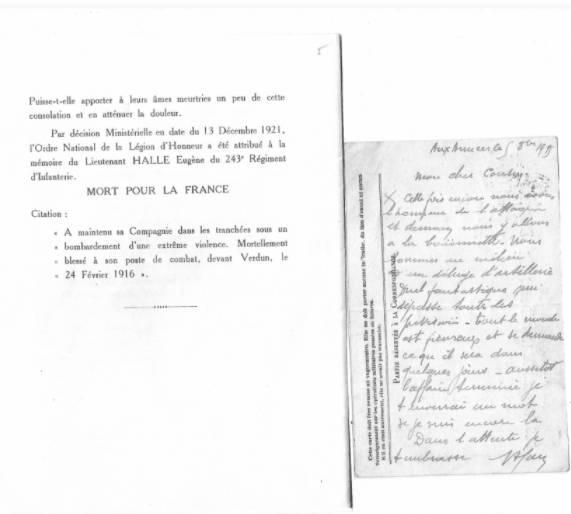 5
Puisse-t-elle apporter à leurs âmes meurtries un peu de cette
consolation et en atténuer la douleur.
Par décision Ministérielle en date du 13 Décembre 1921,
l'Ordre National de la Légion d'Honneur a été attribué à la
mémoire du Lieutenant HALLE Eugène du 243e Régiment
d'Infanterie.
MORT POUR LA FRANCE
Citation :
« A maintenu sa Compagnie dans les tranchées sous un
« bombardement d'une extrême violence. Mortellement
« blessé à son poste de combat, devant Verdun, le
« 24 Février 1916 ».
Cette carte doit être remise au vaguemestre. Elle ne doit porter aucune
renseignement sur les opérations militaires passées ou futures.
PARTIE RÉSERVÉE À LA CORRESPONDANCE
Aux Armées le 5
mon cher
Cette fois encore nous avons
l'honneur de l'
et demain nous y allons
a la baïonnette. Nous
sommes au milieu
d'un déluge d'artillerie
fantastique qui
dépasse toute les
tout le monde
est et se demande
ce qu'il sera dans
quelques jours - aussitot
l'affaire terminée je
t enverrai un mot
si je suis encore la
Dans l'attente je
t embrasse